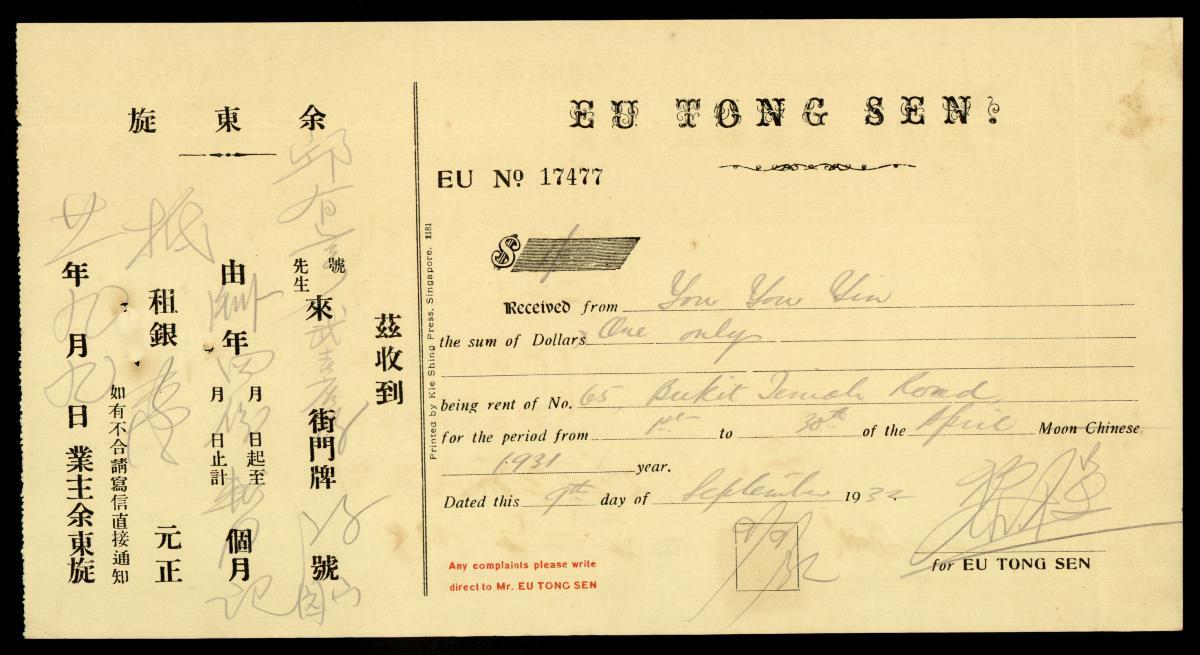 EU TONG SEN.
EU No 17477
$ 1/
Received from You You Yin
the sum of Dollars One only
being rent of No. 65, Bukit Timah Road
for the period from 1st to 30th of the April Moon Chinese
1931 year.
Dated this 9th day of September 1932.
9/9/32
for EU TONG SEN
Any complaints please write
direct to Mr. EU TONG SEN
Printed by Kie Shing Press, Singapore. 2181
余東旋
茲收到
邱有 號先生來武吉 街門牌 號
由 年四月 日起至 月 日止計 個月
租銀 元正
如有不合請寫信直接通知
廿 年九月九日業主余東旋